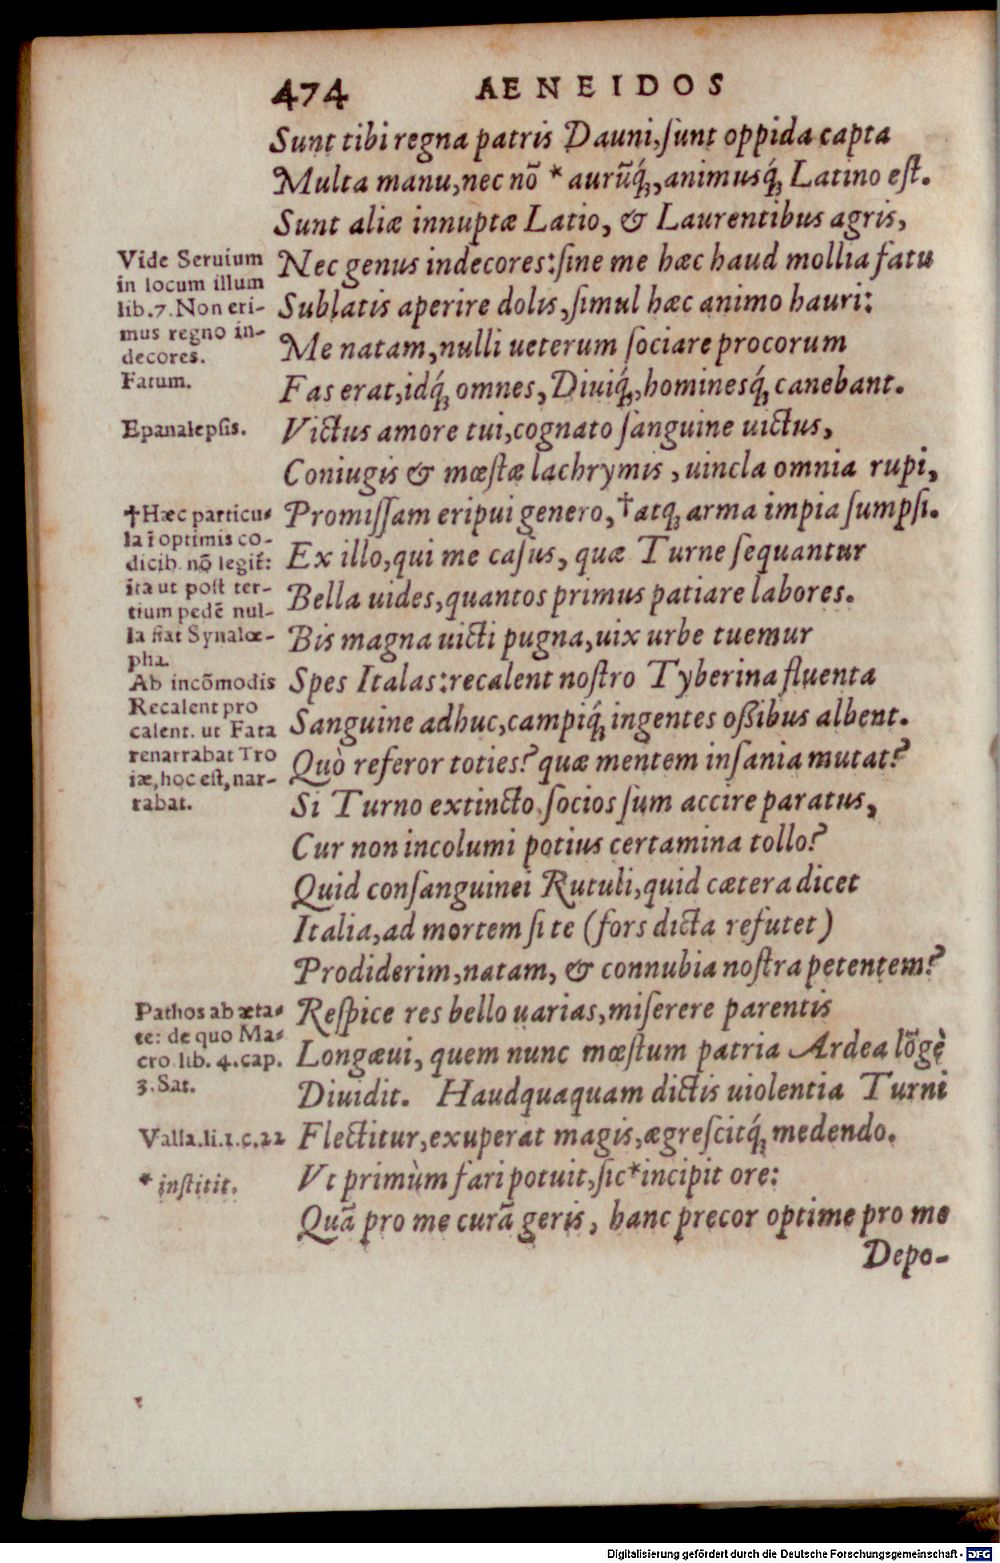 474 AENEIDOS
Sunt tibi regna patris Dauni, ſunt oppida capta
Multa manu, nec nõ * aurũq́₃, animusq́₃ Latino eſt.
Sunt aliæ innuptæ Latio, & Laurentibus agris,
Nec genus indecores: ſine me hæc haud mollia fatu
Sublatis aperire dolis, ſimul hæc animo hauri:
Me natam, nulli ueterum ſociare procorum
Fas erat, idq́₃ omnes, Diuiq́₃, hominesq́₃ canebant.
Victus amore tui, cognato ſanguine uictus,
Coniugis & mœſtæ lachrymis, uincla omnia rupi,
Promiſſam eripui genero, †atq₃ arma impia ſumpſi.
Ex illo, qui me caſus, quæ Turne ſequantur
Bella uides, quantos primus patiare labores.
Bis magna uicti pugna, uix urbe tuemur
Spes Italas: recalent noſtro Tyberina fluenta
Sanguine adhuc, campiq́₃ ingentes oßibus albent.
Quò referor toties? quæ mentem inſania mutat?
Si Turno extincto ſocios ſum accire paratus,
Cur non incolumi potius certamina tollo?
Quid conſanguinei Rutuli, quid cætera dicet
Italia, ad mortem ſi te (fors dicta refutet)
Prodiderim, natam, & connubia noſtra petentem?
Reſpice res bello uarias, miſerere parentis
Longæui, quem nunc mœſtum patria Ardea lõgè
Diuidit. Haudquaquam dictis uiolentia Turni
Flectitur, exuperat magis, ægreſcitq́₃ medendo.
Vt primùm fari potuit, ſic *incipit ore:
Quã pro me curã geris, hanc precor optime pro me
Depo-
Vide Seruium
in locum illum
lib. 7. Non eri-
mus regno in-
decores.
Fatum.
Epanalepſis.
†Hæc particu-
la ĩ optimis co-
dicib. nõ legit̃:
ita ut poſt ter-
tium pedẽ nul-
la fiat Synalœ-
pha.
Ab incõmodis
Recalent pro
calent. ut Fata
renarrabat Tro
iæ, hoc eſt, nar-
rabat.
Pathos ab æta-
te: de quo Ma-
cro. lib. 4. cap.
3. Sat.
Valla. li. 1. c. 22
* inſtitit.
Digitalisierung gefördert durch die Deutsche Forschungsgemeinschaft - DFG